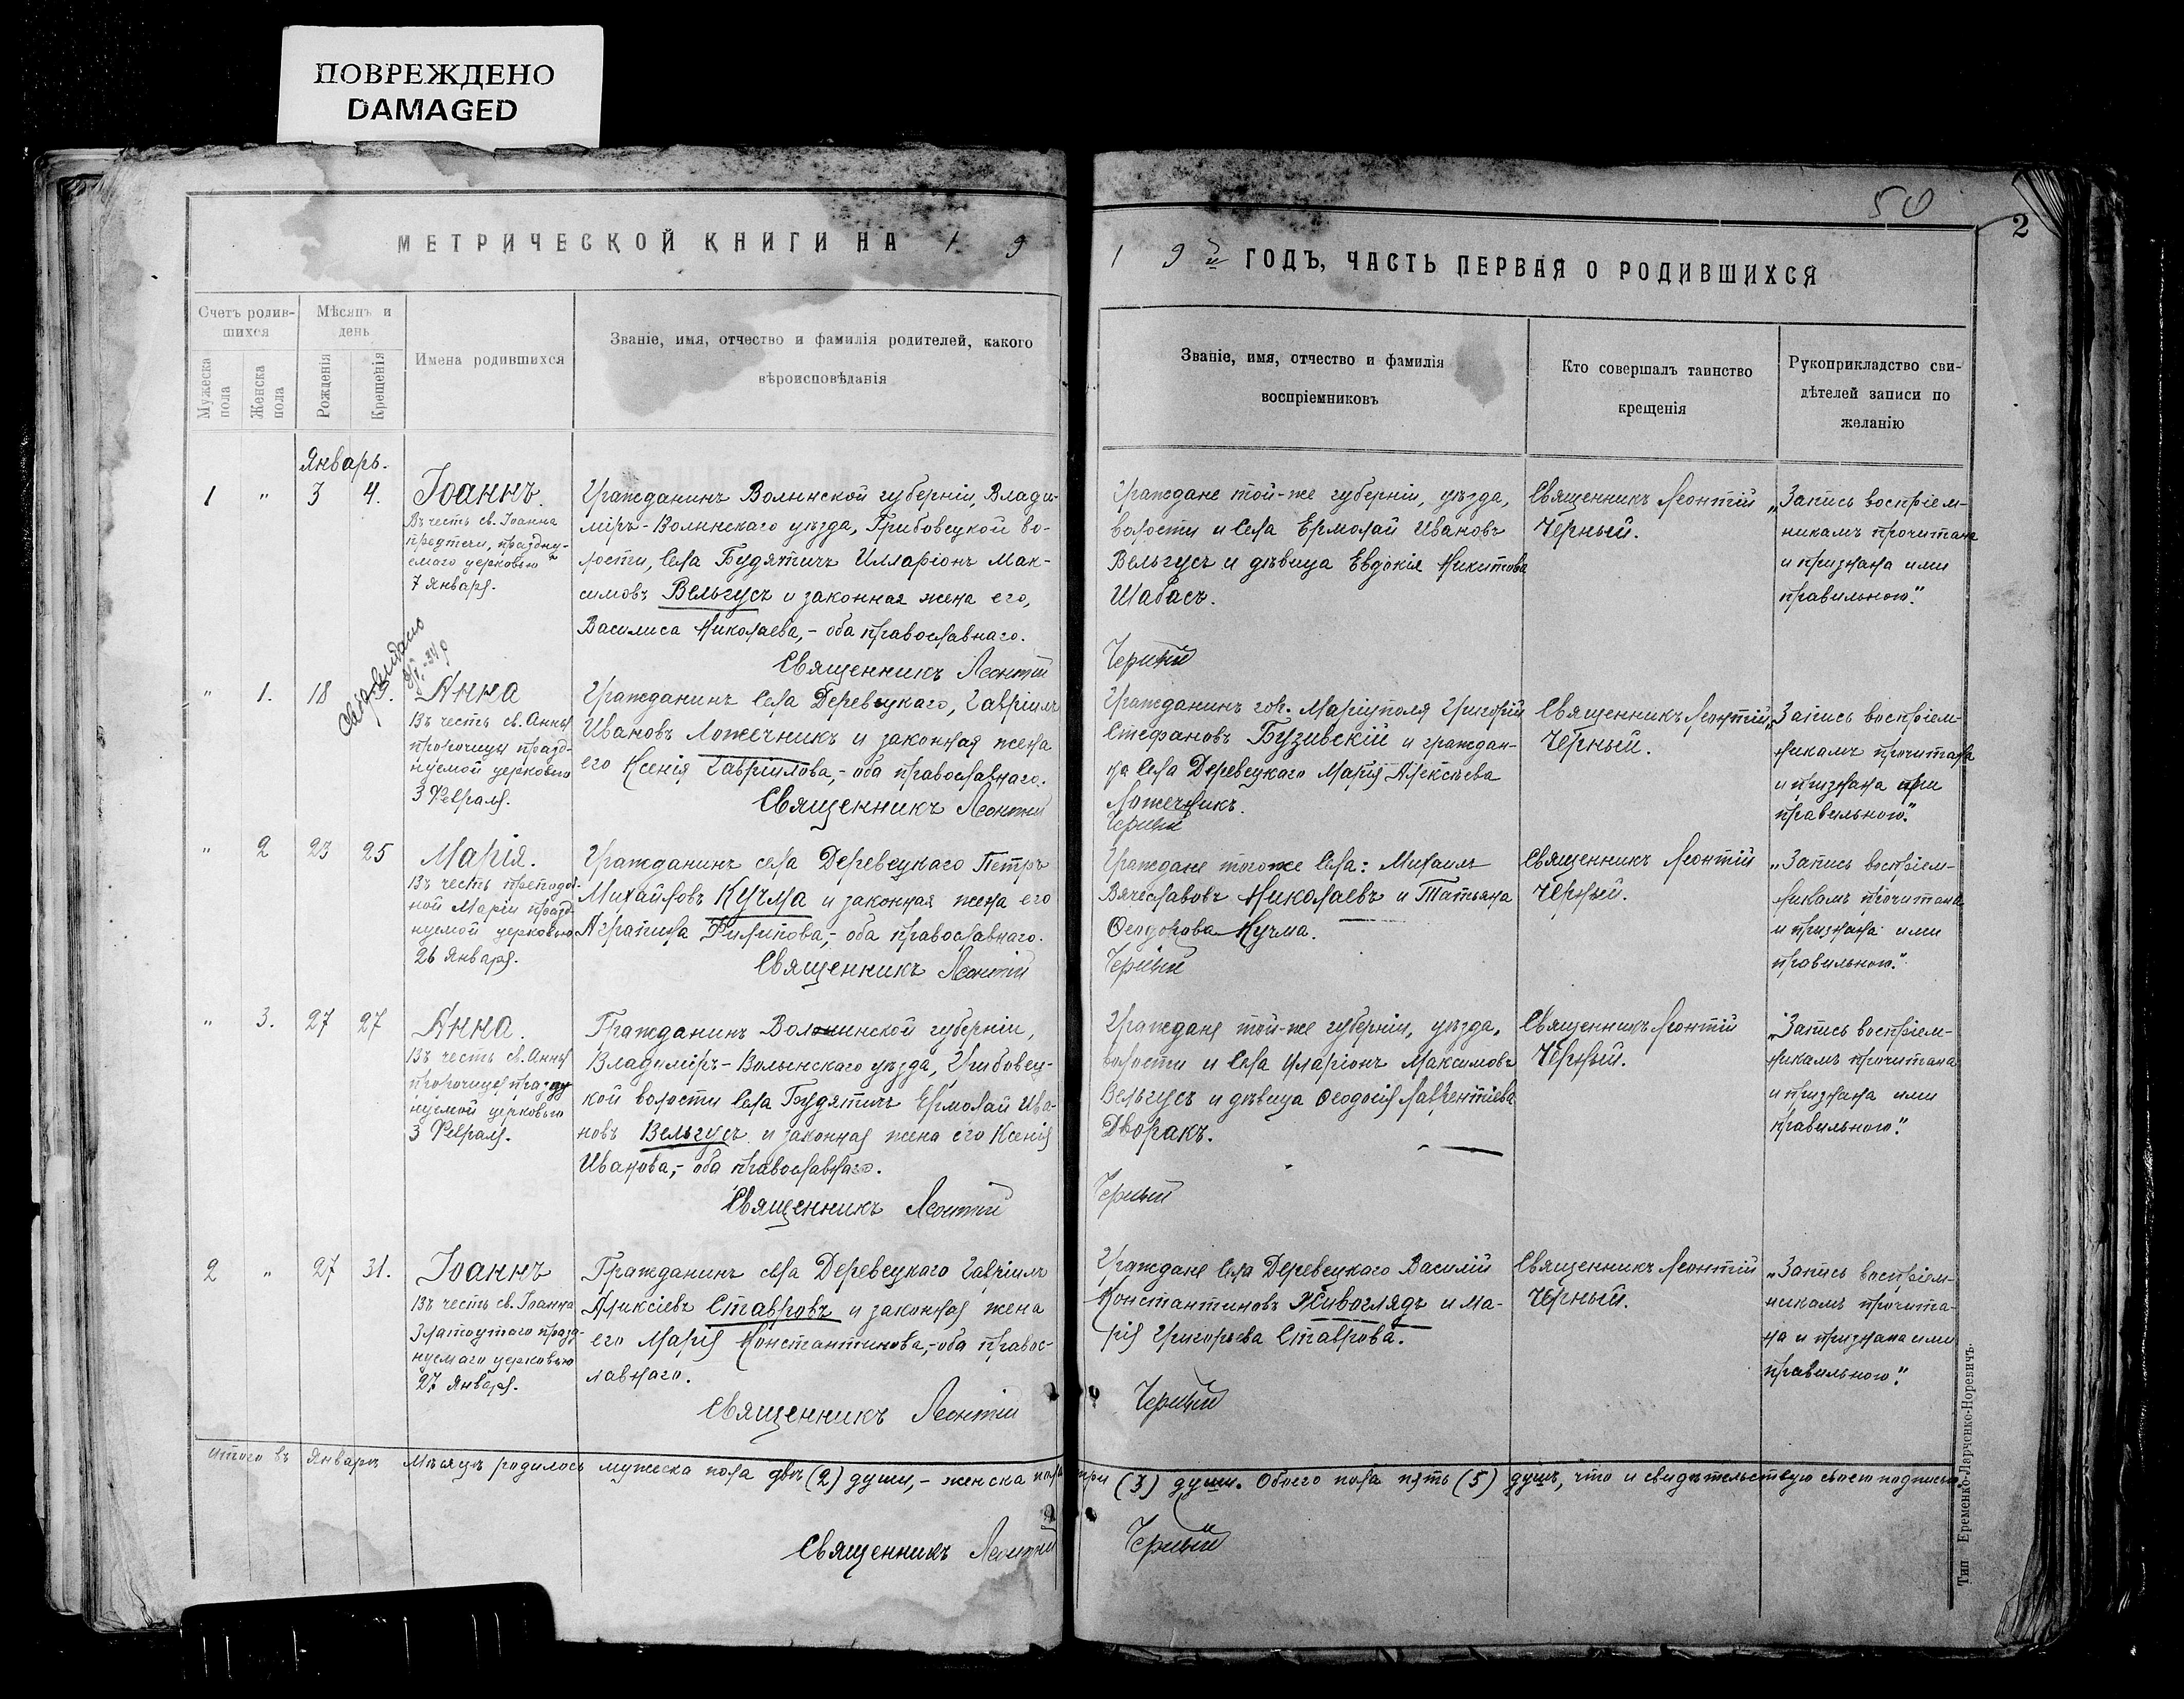 ПОВРЕЖДЕНО
DAMAGED
50
2
МЕТРИЧЕСКОЙ КНИГИ НА 1 9
1 9 й ГОДЪ, ЧАСТЬ ПЕРВАЯ О РОДИВШИХСЯ
Счетъ родив-
шихся
Мужеска пола
Женска пола
Мѣсяцъ и
день
Рожденія
Крещенія
Имена родившихся
Званіе, имя, отчество и фамилія родителей, какого
вѣроисповѣданія
Званіе, имя, отчество и фамилія
воспріемниковъ
Кто совершалъ таинство
крещенія
Рукоприкладство сви-
дѣтелей записи по
желанію
Январь.
1 " 3 4.
Іоаннъ.
Въ честь св. Іоанна
предтечи, праздну-
емаго церковью
7 Января.
Гражданинъ Волынской губерніи, Влади-
міръ-Волынскаго уѣзда, Грибовецкой во-
лости, села Будятичъ Илларіонъ Мак-
симовъ Вельгусъ и законная жена его,
Василиса Николаева,- оба православнаго.
Священникъ Леонтій
Граждане той-же губерніи, уѣзда,
волости и села Ермолай Ивановъ
Вельгусъ и дѣвица Евдокія Никитова
Шабасъ.
Черный
Священникъ Леонтій
Черный.
„Запись воспріем-
никамъ прочитана
и признана ими
правильною."
" 1. 18
Анна
Въ честь св. Анны
пророчицы празд-
нуемой церковью
3 Февраля.
Гражданинъ села Деревецкаго, Гавріилъ
Ивановъ Ложечникъ и законная жена
его Ксенія Гавріилова,- оба православнаго.
Священникъ Леонтій
Гражданинъ гор. Маріуполя Григорій
Стефановъ Бузивскій и граждан-
ка села Деревецкаго Марія Алексѣева
Ложечникъ.
Черный
Священникъ Леонтій
Черный.
„Запись воспріем-
никамъ прочитана
и признана ими
правильною."
" 2 23 25
Марія.
Въ честь преподоб-
ной Маріи празд-
нуемой церковью
26 Января.
Гражданинъ села Деревецкаго Петръ
Михайловъ Кучма и законная жена его
Агрипина Филипова,- оба православнаго.
Священникъ Леонтій
Граждане тогоже села: Михаилъ
Вячеславовъ Николаевъ и Татьяна
Ѳеодорова Кучма.
Черный
Священникъ Леонтій
Черный.
„Запись воспріем-
никамъ прочитана
и признана ими
правильною."
" 3. 27 27
Анна.
Въ честь св. Анны
пророчицы празд
нуемой церковью
3 Февраля.
Гражданинъ Волынской губерніи,
Владиміръ-Волынскаго уѣзда, Грибовец-
кой волости села Будятичъ Ермолай Ива-
новъ Вельгусъ и законная жена его Ксенія
Иванова,- оба православнаго.
Священникъ Леонтій
Граждане той-же губерніи, уѣзда,
волости и села Иларіонъ Максимовъ
Вельгусъ и дѣвица Ѳеодосія Лаврентіева
Дворакъ.
Черный
Священникъ Леонтій
Черный.
„Запись воспріем-
никамъ прочитана
и признана ими
правильною."
2 " 27 31.
Іоаннъ
Въ честь св. Іоанна
Златоустаго празд-
нуемаго церковью
27 Января.
Гражданинъ села Деревецкаго Гавріилъ
Алексіевъ Ставровъ и законная жена
его Марія Константинова,-оба правос-
лавнаго.
Священникъ Леонтій
Граждане села Деревецкаго Василій
Константиновъ Живоглядъ и Ма-
рія Григорьева Ставрова.
Черный
Священникъ Леонтій
Черный.
„Запись воспріем-
никамъ прочита-
на и признана ими
правильною."
Итого въ Январѣ Мѣсяцѣ родилось мужеска пола двѣ (2) души,- женска пола три (3) души. Обоего пола пять (5) душъ, что и свидѣтельствую своею подписью.
Священникъ Леонтій Черный
Тип Еременко-Ларченко-Норевичъ.